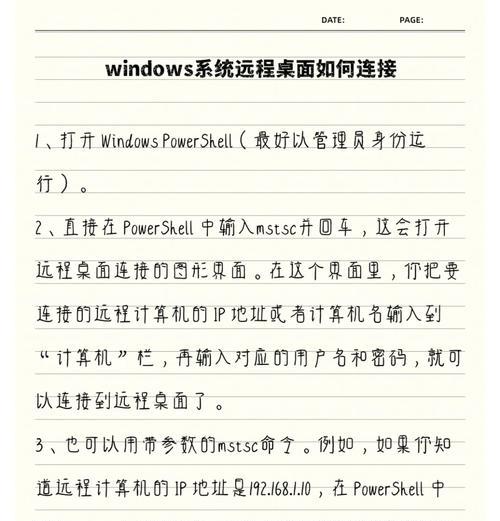 DATE: PAGE:
windows系统远程桌面如何连接
1、打开Windows PowerShell(最好以管理员身份运
行)。
2、直接在PowerShell中输入mstsc并回车,这会打开
远程桌面连接的图形界面。在这个界面里,你把要
连接的远程计算机的IP地址或者计算机名输入到
“计算机”栏,再输入对应的用户名和密码,就可
以连接到远程桌面了。
3、也可以用带参数的mstsc命令。例如,如果你知
道远程计算机的IP地址是192.168.1.10,在PowerShell中